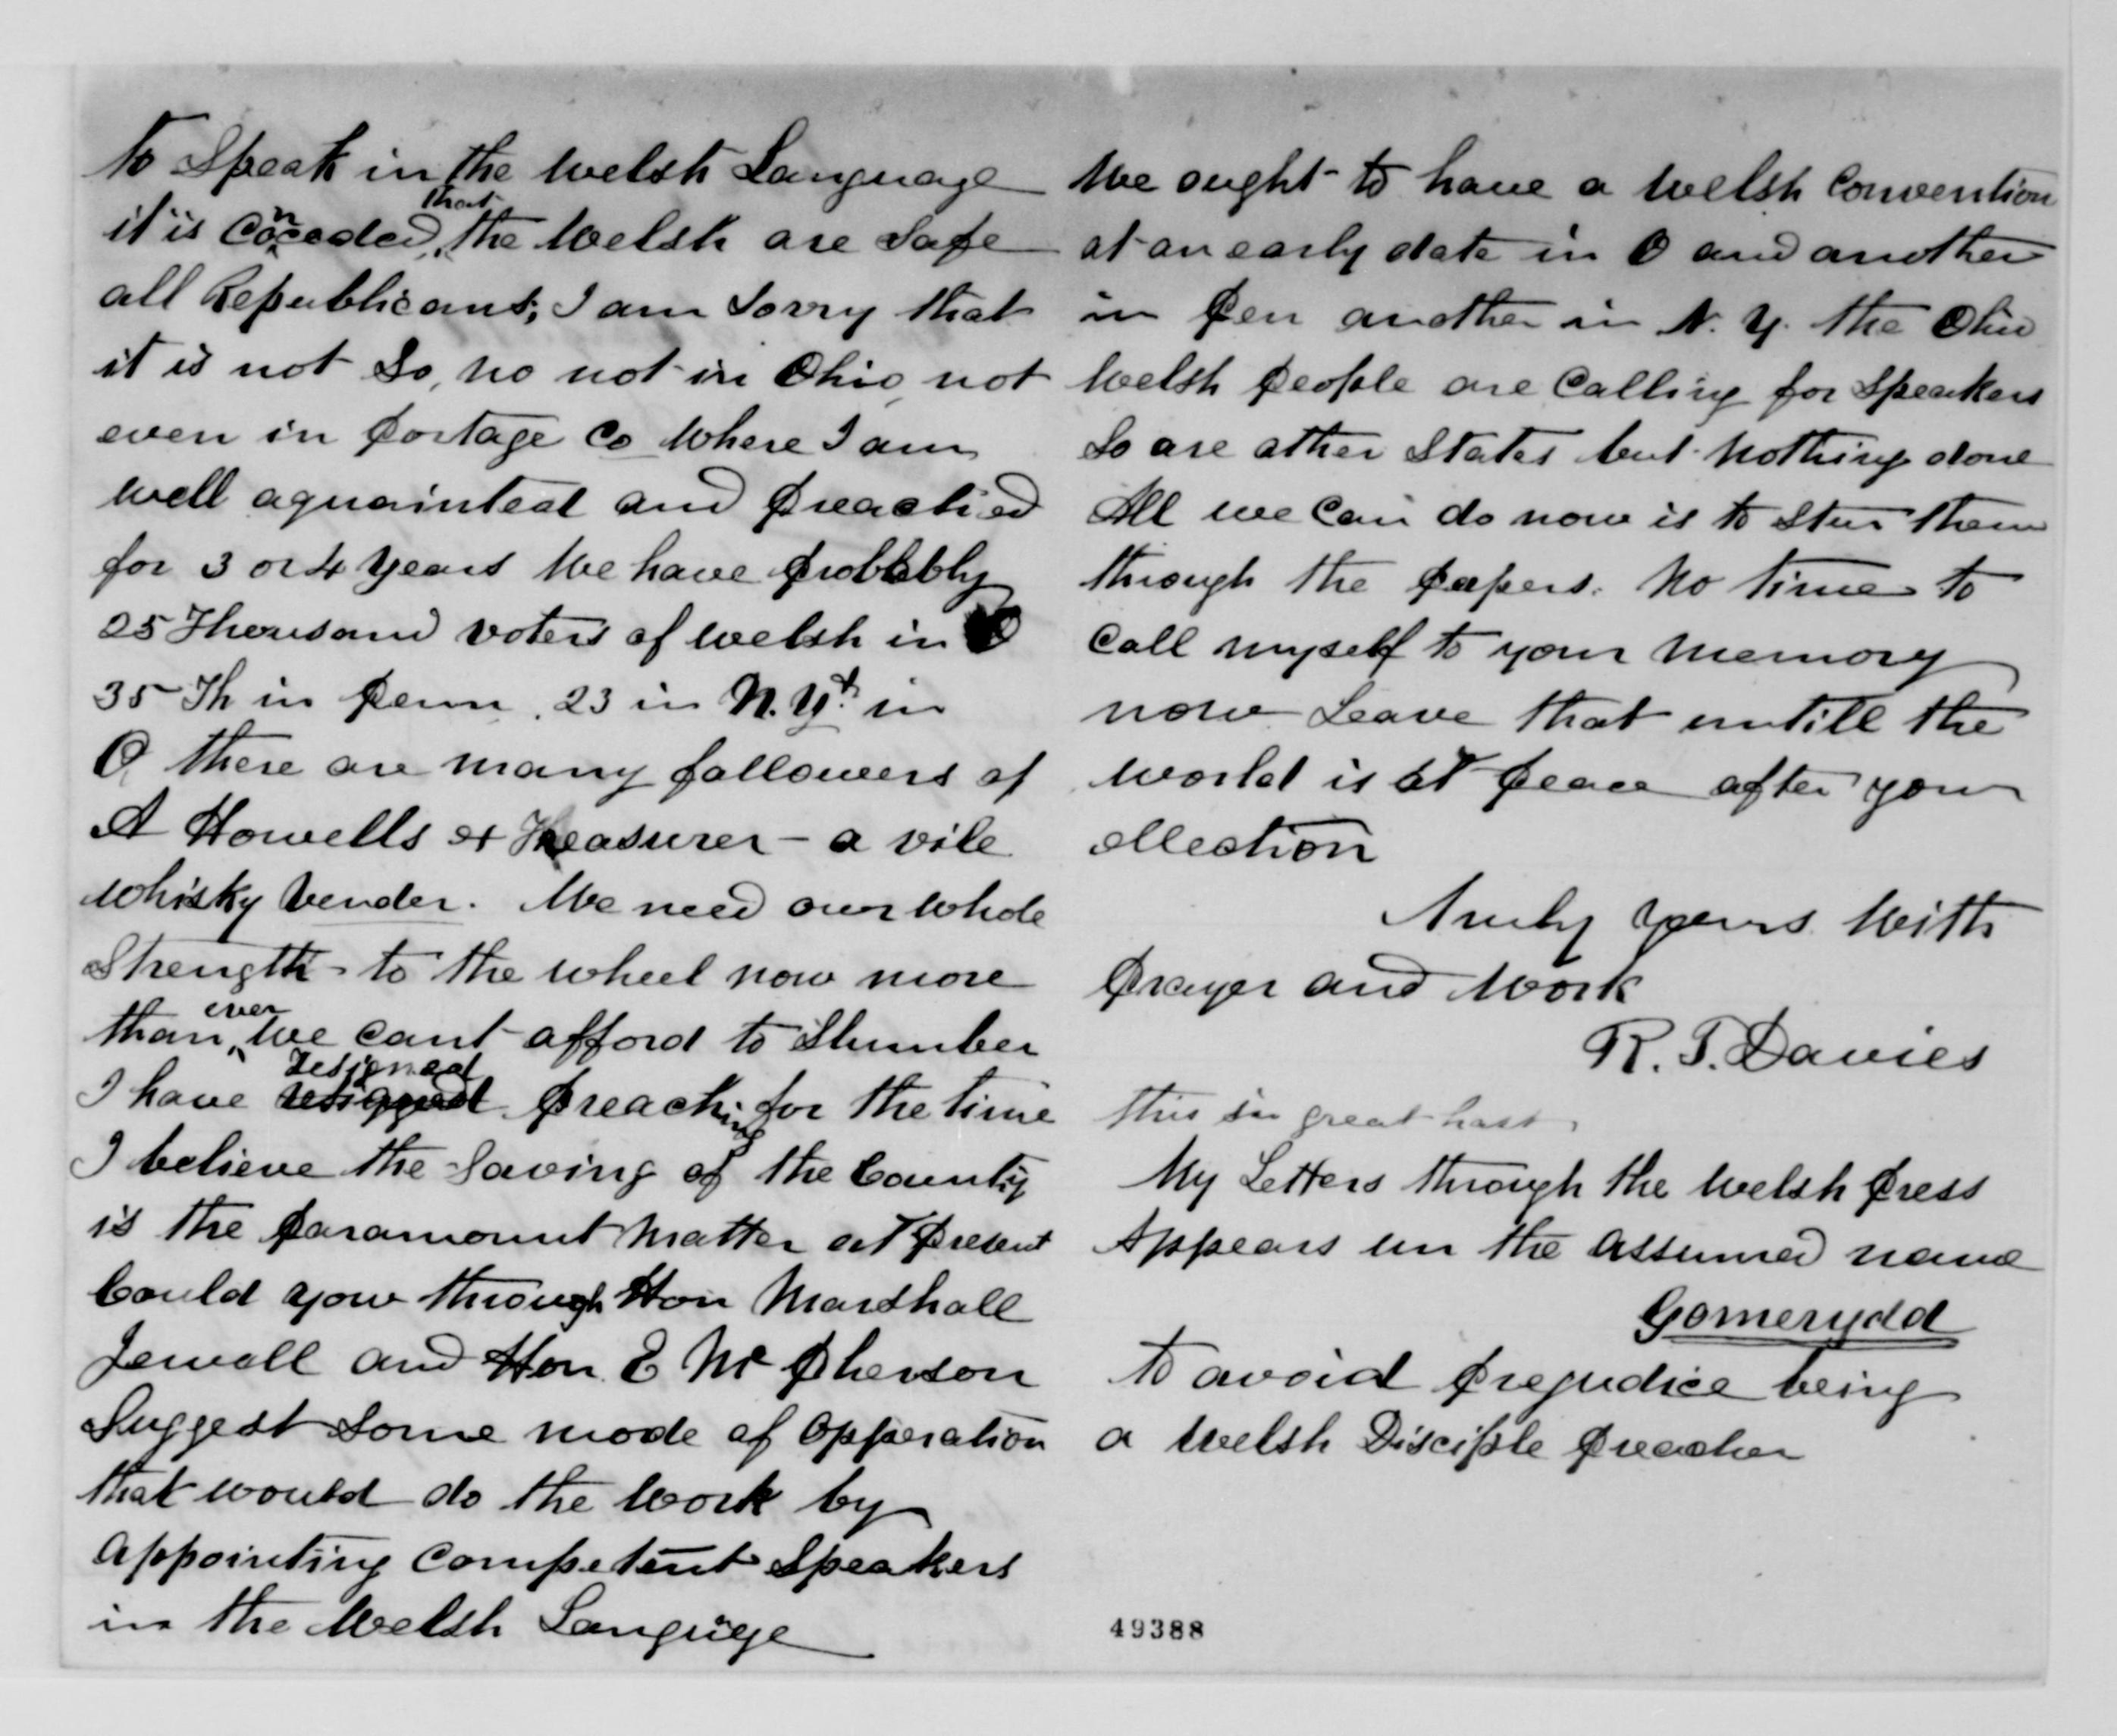 to Speak in the Welsh Language
it is Conceded that the Welsh are Safe
all Republicans; I am Sorry that
it is not So, no not in Ohio, not
even in Portage Co Where I am
well aquainted and Preached
for 3 or 4 years We have probbbly
25 Thousand voters of welsh in O
35 Th in Penn. 23 in N.Y. in
O there are many followers of
A Howells ex Treasurer - a vile
whisky vender. We need our whole
Strength to the wheel now more
than ever we cant afford to Slumber
I have resigned Preaching for the time
I believe the Saving of the County
is the Paramount matter at Present
Could you through Hon Marshall
Jewell and Hon. E Mc Pherson
Suggest Some mode of Opperation
that would do the Work by
appointing Competent Speakers
in the Welsh Language
We ought to have a Welsh Convention
at an early date in O and another
in Pen another in N.Y. the Ohio
Welsh People are Calling for Speakers
So are other States but Nothing done
All we Can do now is to Stur them
through the Papers. No time to
Call myself to your Memory
now Leave that untill the
world is at Peace after your
ellection
Truly yours With
Prayer and Work
R. T. Davies
this in great hast
My Letters through the Welsh Press
Appears un the assumed name
Gomerydd
to avoid Prejudice being
a Welsh Disciple Preacher
49388